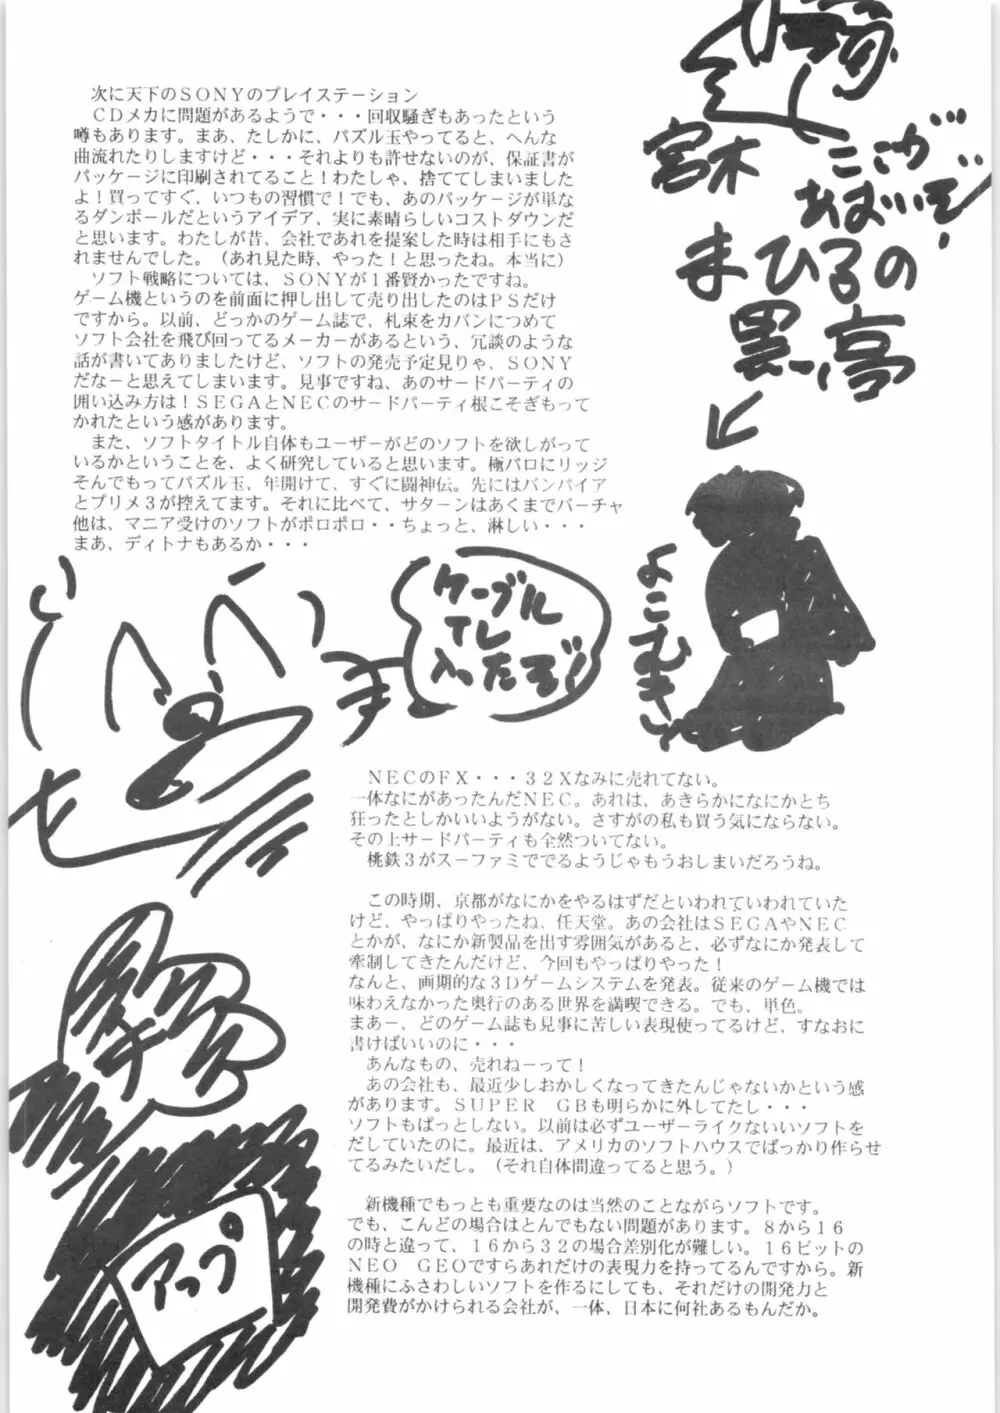 次に天下のSONYのプレイステーション
CDメカに問題があるようで・・・回収騒ぎもあったという
噂もあります。まあ、たしかに、パズル玉やってると、へんな
曲流れたりしますけど・・・それよりも許せないのが、保証書が
パッケージに印刷されてること！わたしゃ、捨ててしまいました
よ！買ってすぐ、いつもの習慣で！でも、あのパッケージが単な
るダンボールだというアイデア、実に素晴らしいコストダウンだ
と思います。わたしが昔、会社であれを提案した時は相手にもさ
れませんでした。（あれ見た時、やった！と思ったね。本当に）
ソフト戦略については、SONYが1番賢かったですね。
ゲーム機というのを前面に押し出して売り出したのはPSだけ
ですから。以前、どっかのゲーム誌で、札束をカバンにつめて
ソフト会社を飛び回ってるメーカーがあるという、冗談のような
話が書いてありましたけど、ソフトの発売予定見りゃ、SONY
だなーと思えてしまいます。見事ですね、あのサードパーティの
囲い込み方は！SEGAとNECのサードパーティ根こそぎもって
かれたという感があります。
また、ソフトタイトル自体もユーザーがどのソフトを欲しがって
いるかということを、よく研究していると思います。極パロにリッジ
そんでもってパズル玉、年開けて、すぐに闘神伝。先にはバンパイア
とプリメ3が控えてます。それに比べて、サターンはあくまでバーチャ
他は、マニア受けのソフトがポロポロ・・ちょっと、淋しい・・・
まあ、ディトナもあるか・・・
宮木
ここが
あまいぞ!
まひるの
黒い亭
よこむき
ケーブル
TV
入ったぞ!
NECのFX・・・32Xなみに売れてない。
一体なにがあったんだNEC。あれは、あきらかになにかとち
狂ったとしかいいようがない。さすがの私も買う気にならない。
その上サードパーティも全然ついてない。
桃鉄3がスーファミででるようじゃもうおしまいだろうね。
この時期、京都がなにかをやるはずだといわれていわれていた
けど、やっぱりやったね、任天堂。あの会社はSEGAやNEC
とかが、なにか新製品を出す雰囲気があると、必ずなにか発表して
牽制してきたんだけど、今回もやっぱりやった！
なんと、画期的な3Dゲームシステムを発表。従来のゲーム機では
味わえなかった奥行のある世界を満喫できる。でも、単色。
まあー、どのゲーム誌も見事に苦しい表現使ってるけど、すなおに
書けばいいのに・・・
あんなもの、売れねーって！
あの会社も、最近少しおかしくなってきたんじゃないかという感
があります。SUPER GBも明らかに外してたし・・・
ソフトもぱっとしない。以前は必ずユーザーライクないいソフトを
だしていたのに。最近は、アメリカのソフトハウスでばっかり作らせ
てるみたいだし。（それ自体間違ってると思う。）
新機種でもっとも重要なのは当然のことながらソフトです。
でも、こんどの場合はとんでもない問題があります。8から16
の時と違って、16から32の場合差別化が難しい。16ビットの
NEO GEOですらあれだけの表現力を持ってるんですから。新
機種にふさわしいソフトを作るにしても、それだけの開発力と
開発費がかけられる会社が、一体、日本に何社あるもんだか。
アップ